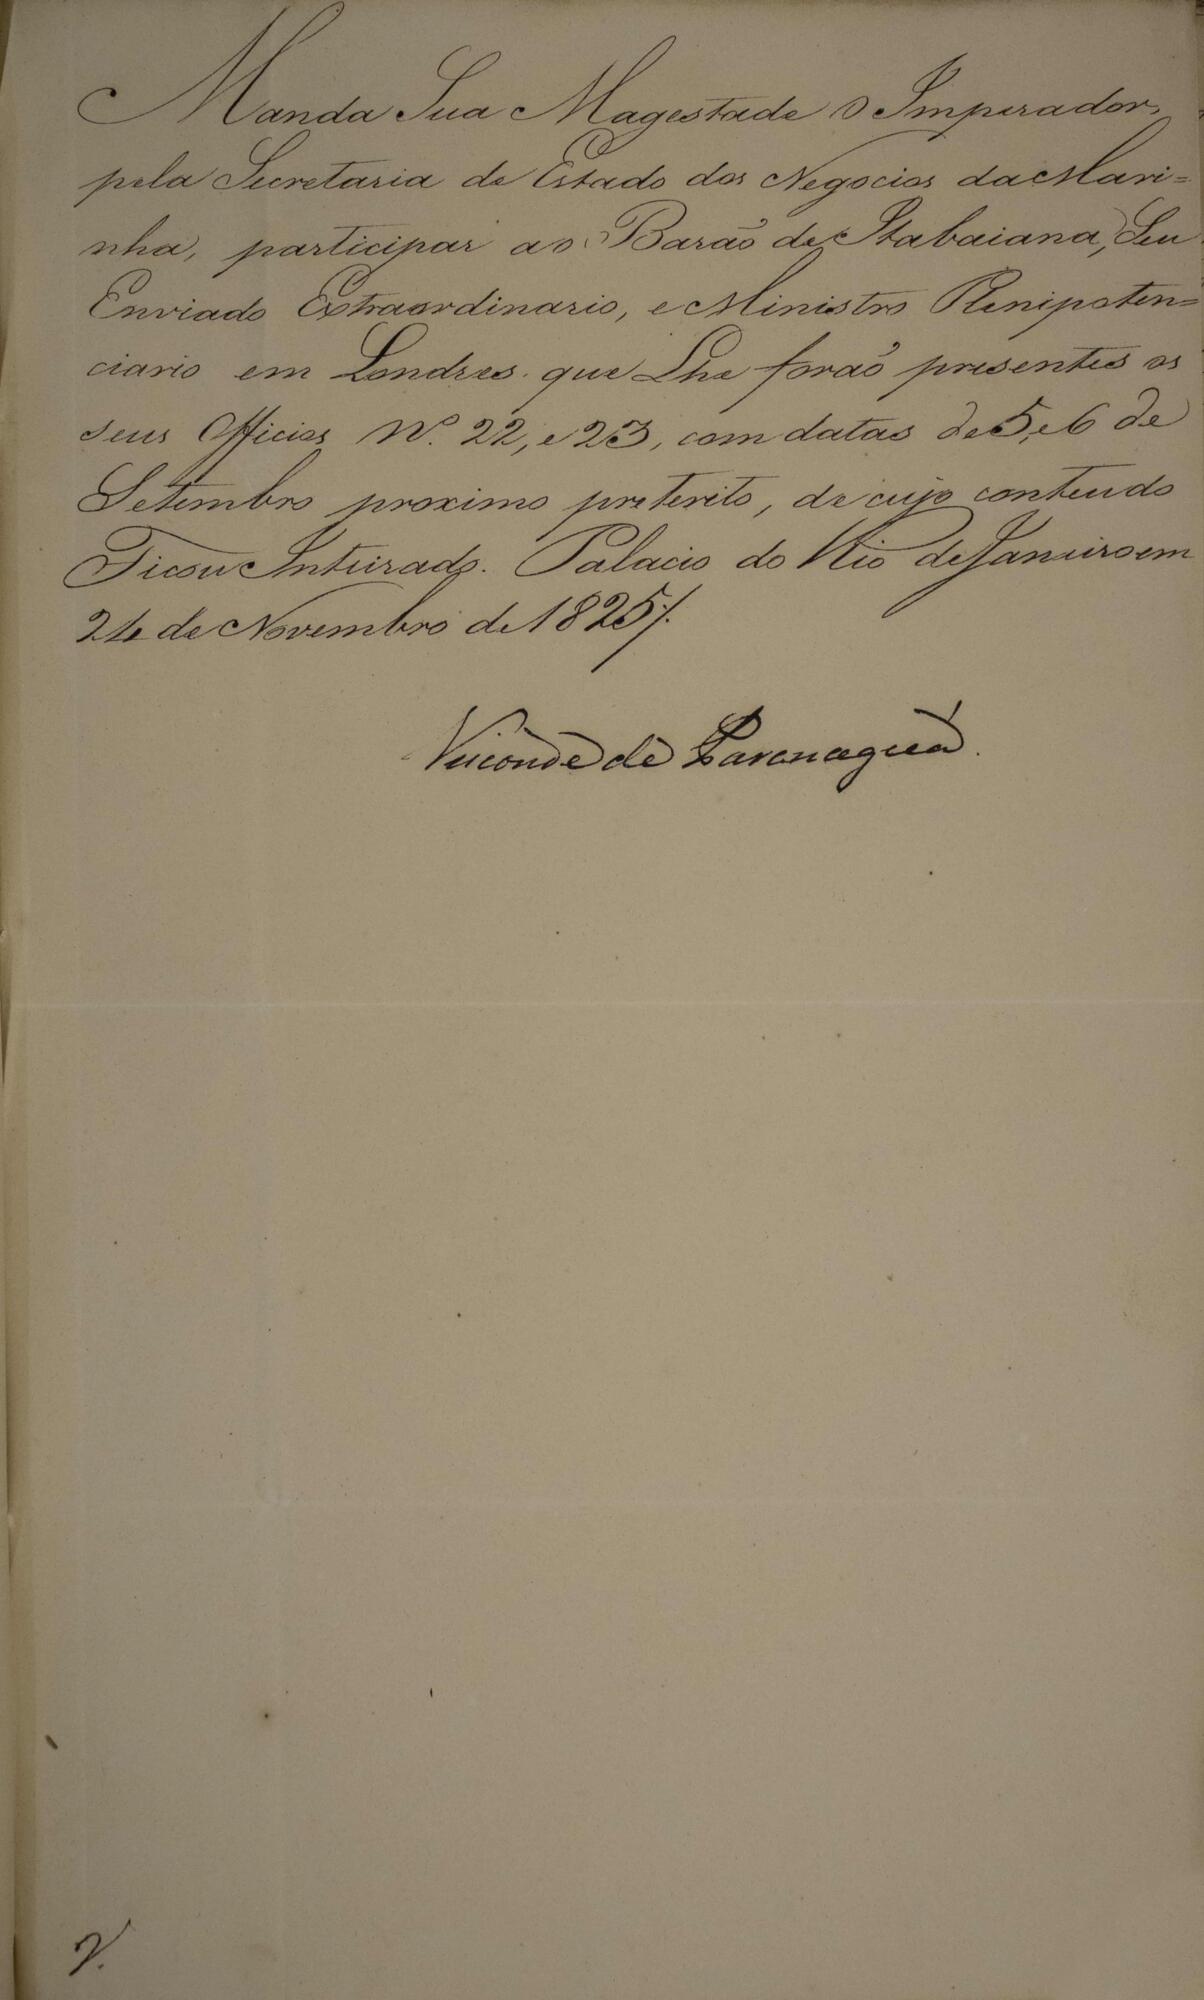 Manda Sua Magestade O Imperador,
pela Secretaria de Estado dos Negocios da Mari=
nha, participar ao Barão de Itabaiana, Seu
Enviado Extraordinario, e Ministro Plenipoten=
ciario em Londres que Lhe forão presentes os
seus Officios Nº. 22, e 23, com datas de 5, e 6 de
Setembro proximo preterito, de cujo conteudo
Ficou Inteirado. Palacio do Rio de Janeiro em
24 de Novembro de 1825/.
Visconde de Paranaguá.